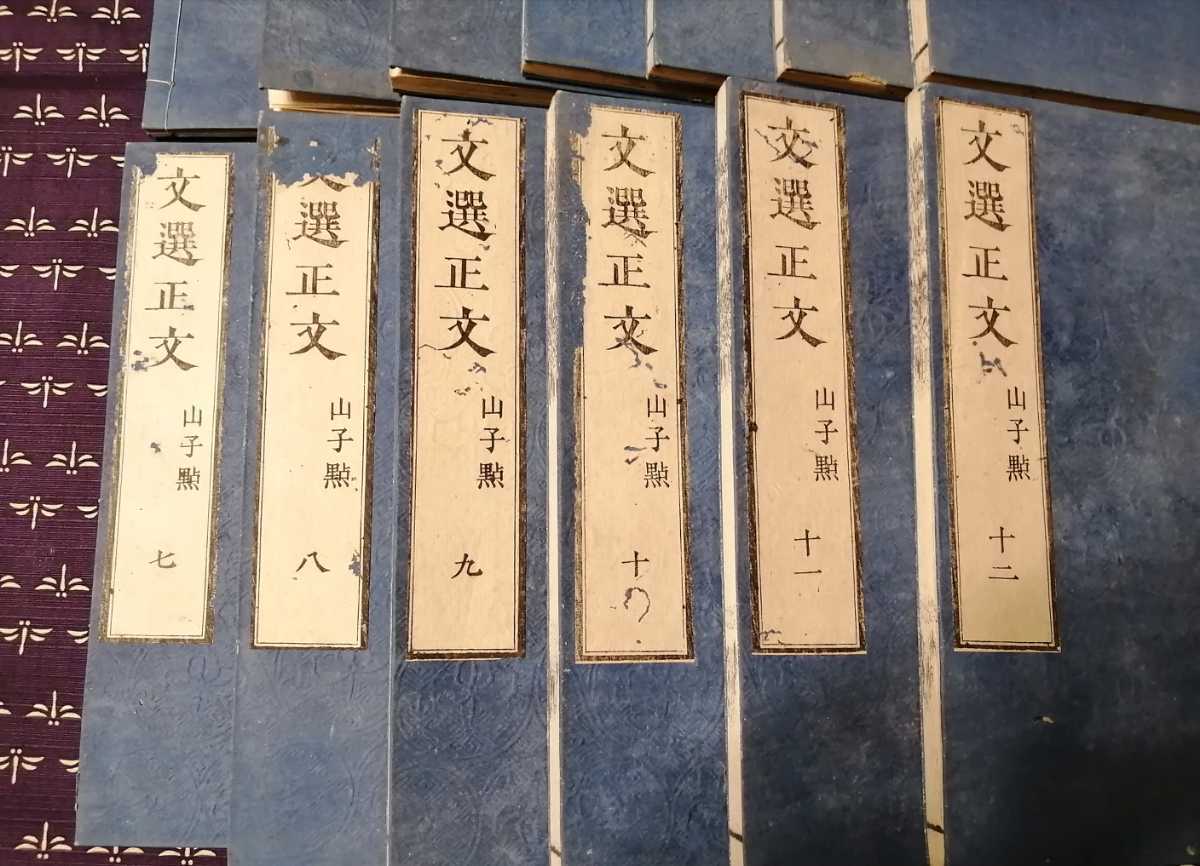 文選正文
山子點
七
選正文
山子點
八
文選正文
山子點
九
文選正文
山子點
十
文選正文
山子點
十一
文選正文
山子點
十二